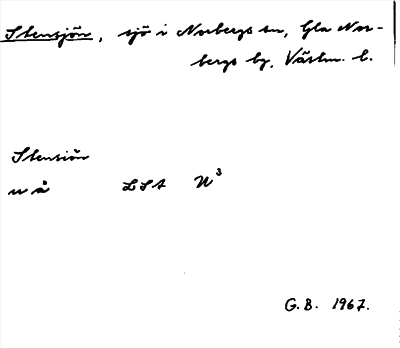 Stensjön, sjö i Norbergs sn, Gla Nor-
bergs by, Västm. l.
Stensiön
u å LSA U³
G.B. 1967.